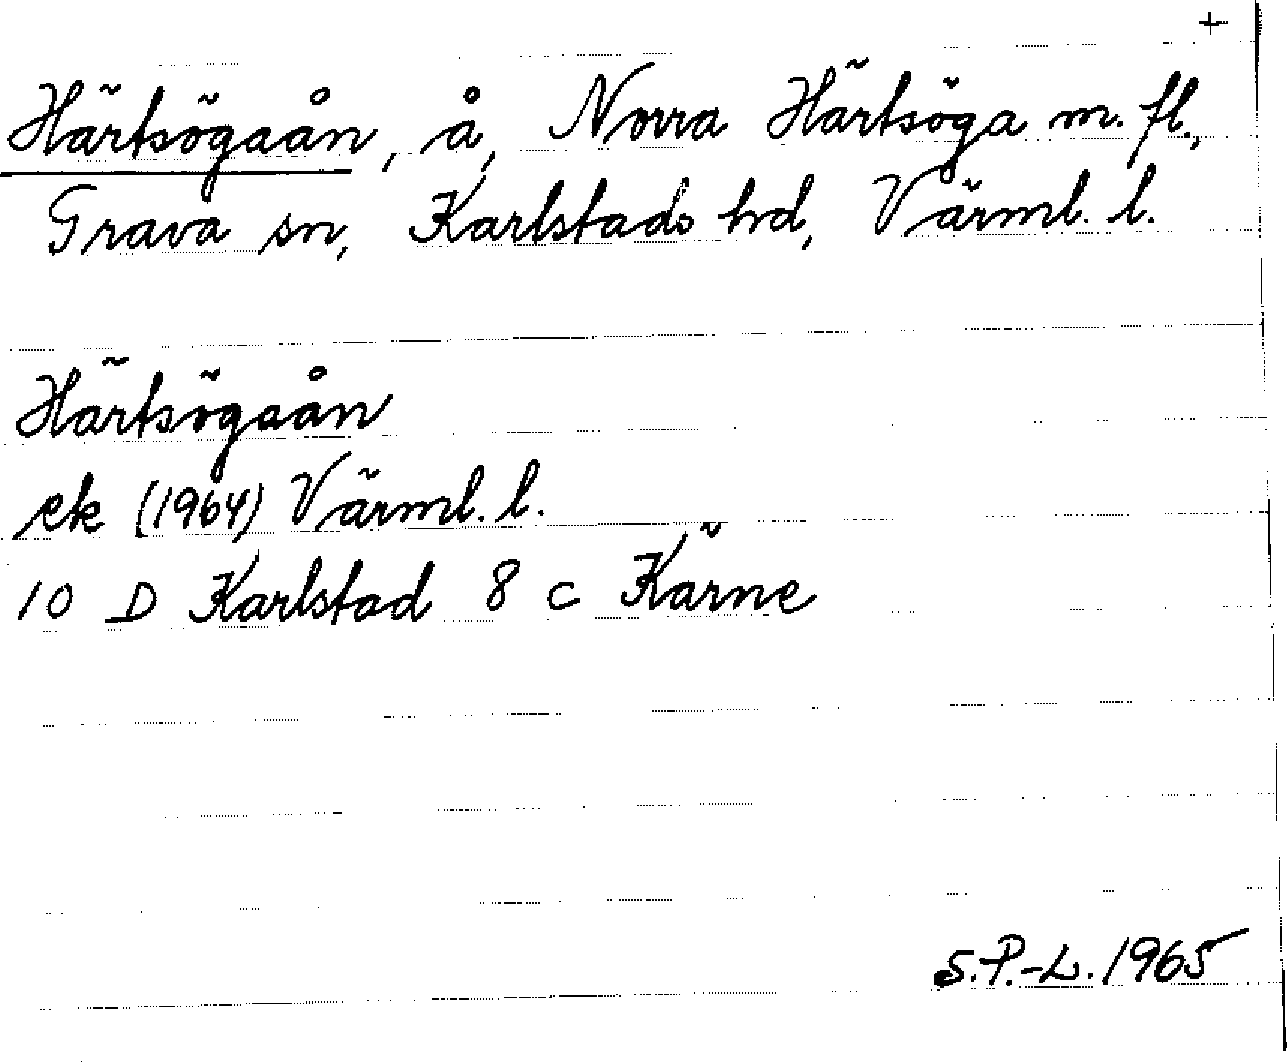 +
Härtsögaån, å, Norra Härtsöga m. fl.,
Grava sn, Karlstads hd, Värml. l.
Härtsögaån
ek (1964) Värml. l.
10 D Karlstad 8 c Kärne
S.P.-L. 1965